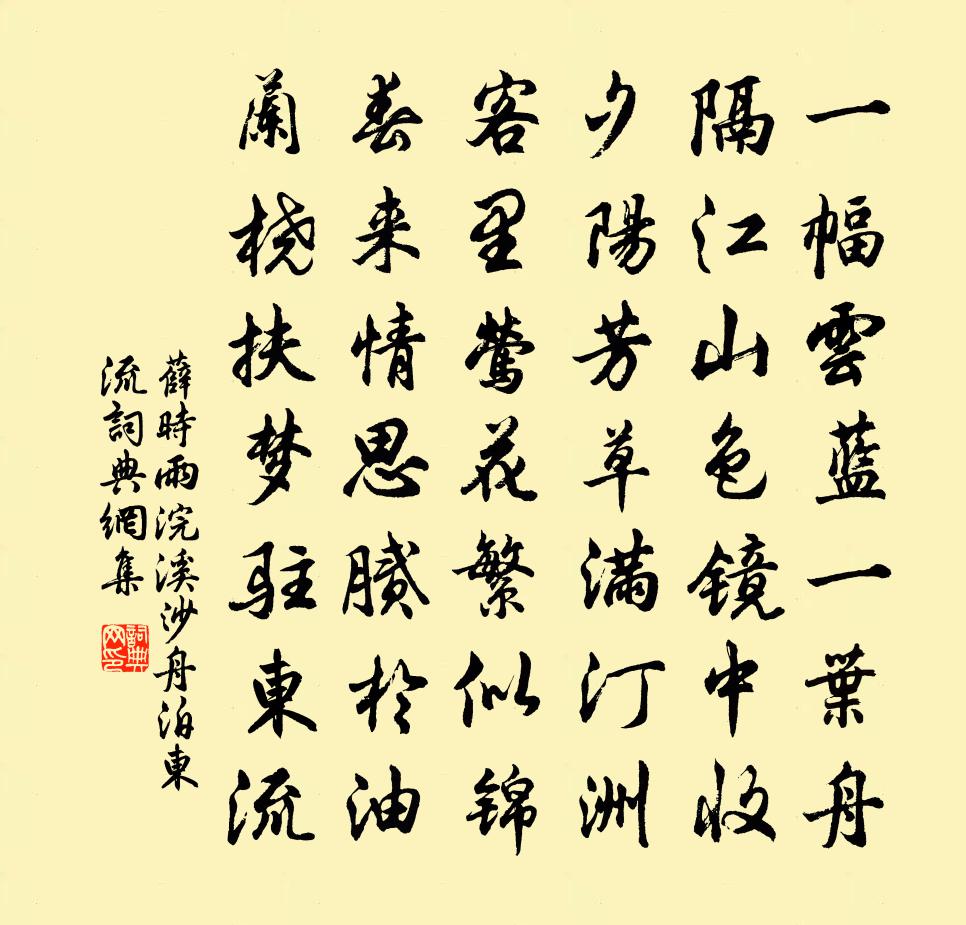 一幅雲藍一葉舟
隔江山色镜中收
夕陽芳草满汀洲
客里鶯花繁似锦
春来情思腻於油
蘭桡扶梦驻東流
薛時雨浣溪沙舟泊東
流詞典網集
詞典网印